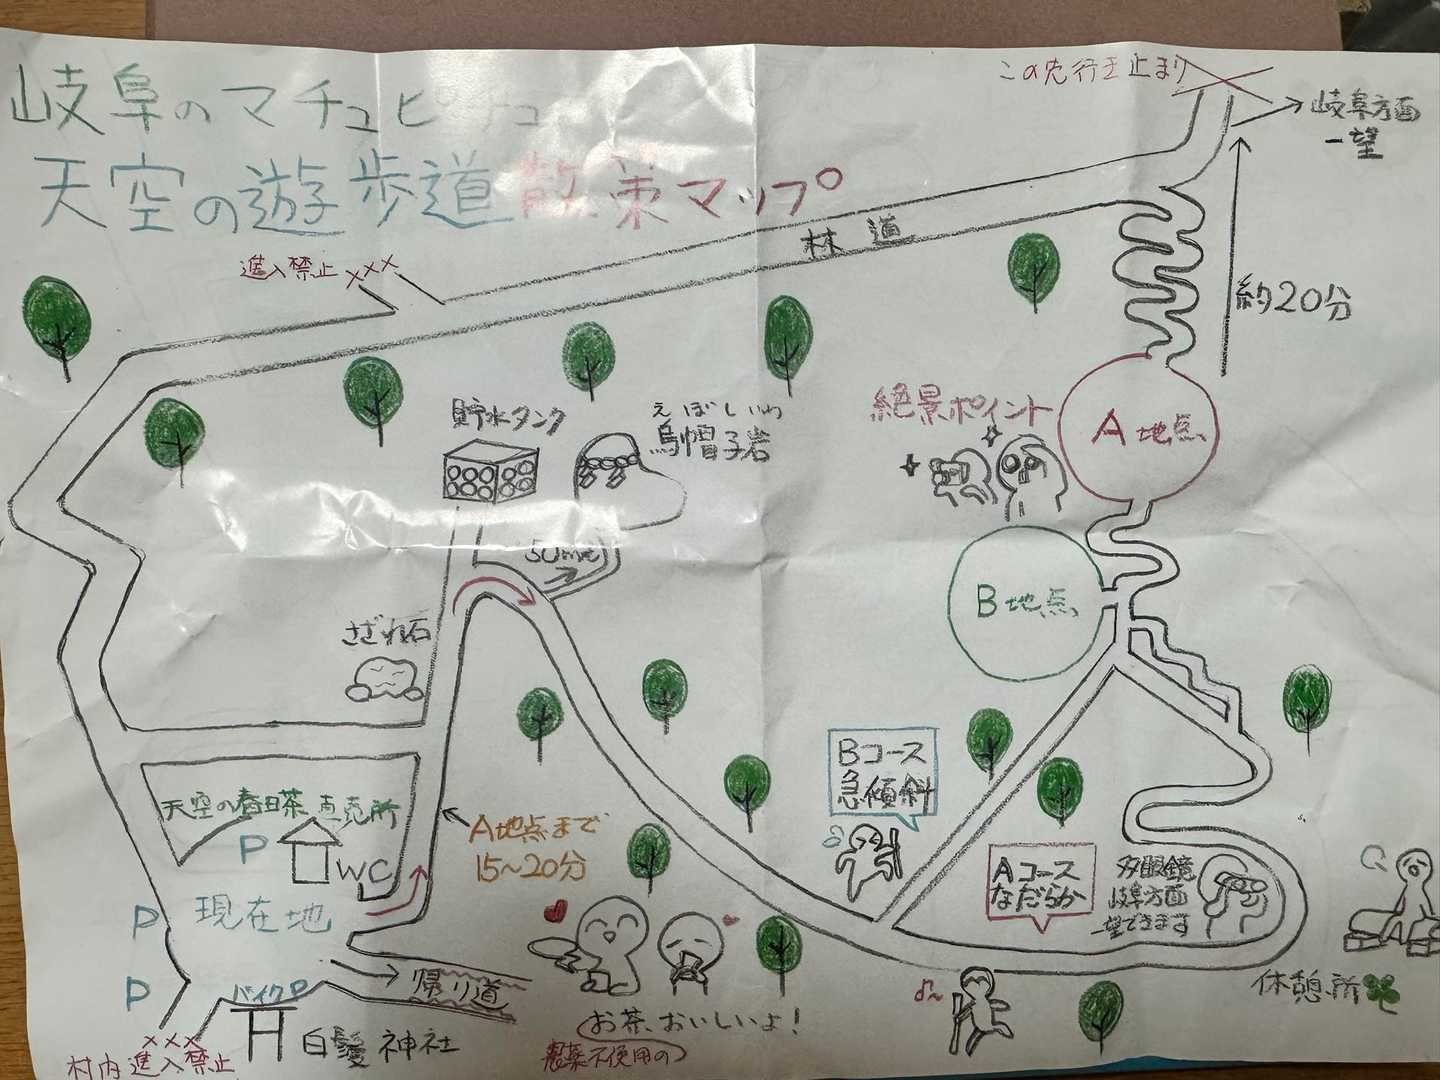 岐阜のマチュピチュ
天空の遊歩道散策マップ
この先行き止まり
岐阜方面
一望
林道
進入禁止×××
約20分
貯水タンク
えぼしいわ
烏帽子岩
絶景ポイント
A地点
50m先
B地点
さざれ石
Bコース
急傾斜
天空の春日茶直売所
P
WC
A地点まで
15~20分
Aコース
なだらか
双眼鏡
岐阜方面
一望できます
P
現在地
P
バイクP
帰り道
休憩所
お茶、おいしいよ!
農薬不使用の
白髭神社
×××
村内進入禁止